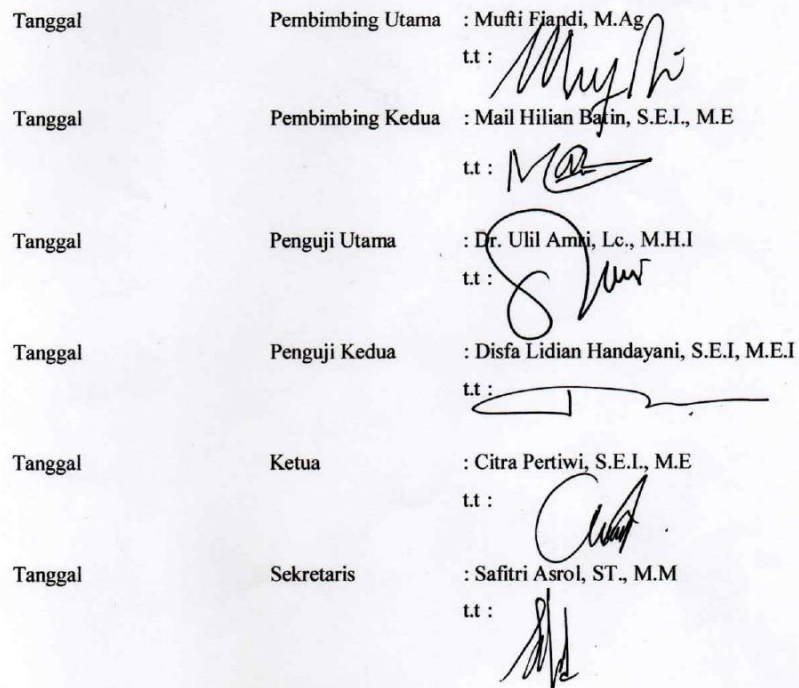 Tanggal Pembimbing Utama : Mufti Fiandi, M.Ag
t.t :
Tanggal Pembimbing Kedua : Mail Hilian Batin, S.E.I., M.E
t.t :
Tanggal Penguji Utama : Dr. Ulil Amri, Lc., M.H.I
t.t :
Tanggal Penguji Kedua : Disfa Lidian Handayani, S.E.I, M.E.I
t.t :
Tanggal Ketua : Citra Pertiwi, S.E.I., M.E
t.t :
Tanggal Sekretaris : Safitri Asrol, ST., M.M
t.t :